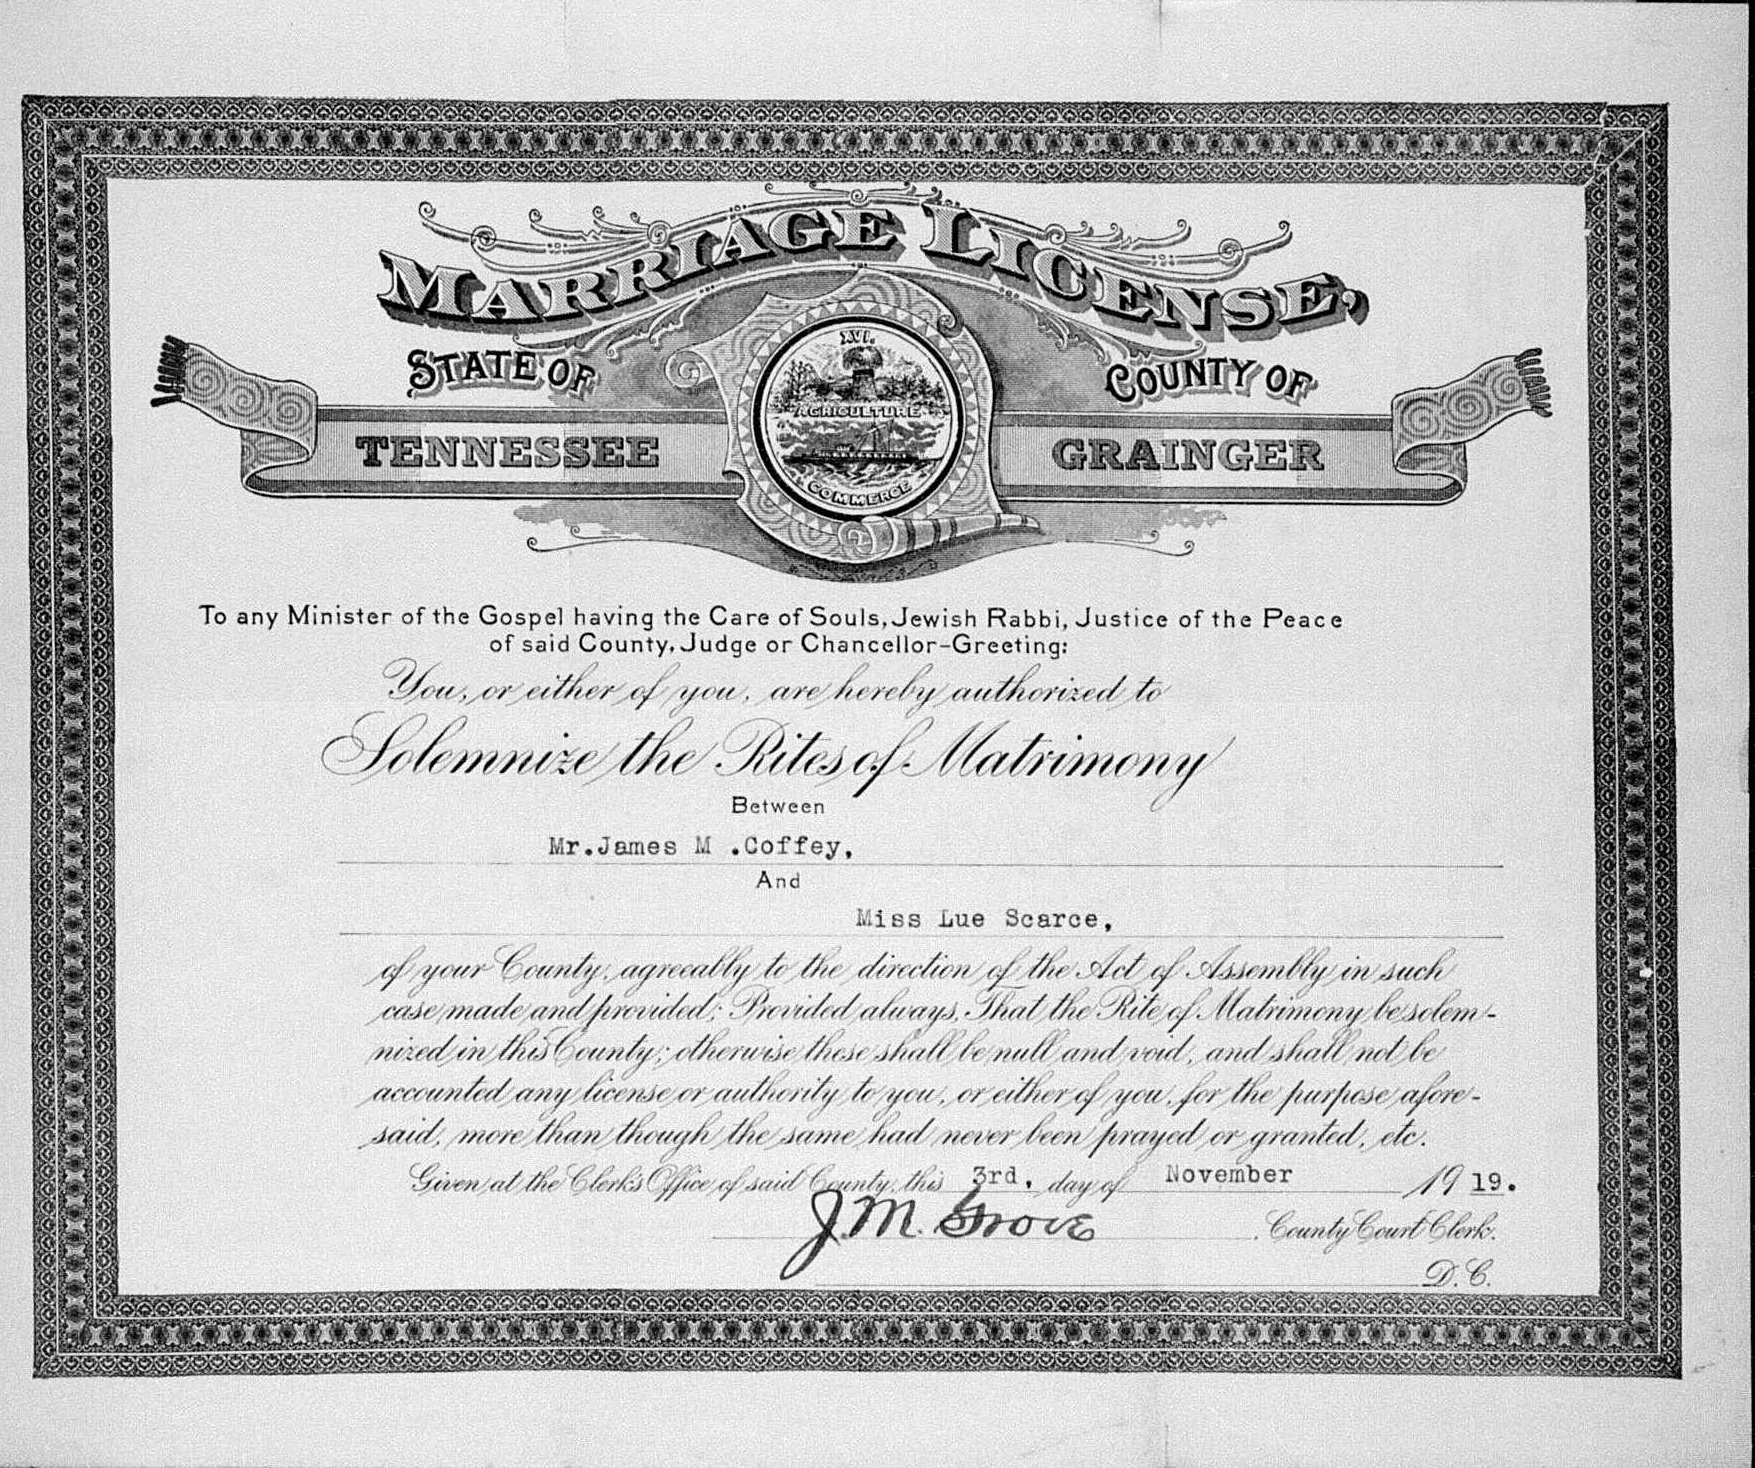 MARRIAGE LICENSE,
STATE OF
COUNTY OF
TENNESSEE
GRAINGER
XVI.
AGRICULTURE
COMMERCE
To any Minister of the Gospel having the Care of Souls, Jewish Rabbi, Justice of the Peace
of said County, Judge or Chancellor-Greeting:
You, or either of you, are hereby authorized to
Solemnize the Rites of Matrimony
Between
Mr.James M .Coffey,
And
Miss Lue Scarce,
of your County, agreeably to the direction of the Act of Assembly in such
case made and provided; Provided always, That the Rite of Matrimony be solem-
nized in this County; otherwise these shall be null and void, and shall not be
accounted any license or authority to you, or either of you, for the purpose afore-
said, more than though the same had never been prayed or granted, etc.
Given at the Clerk's Office of said County, this 3rd. day of November 1919.
J.M. Grove County Court Clerk.
D. C.